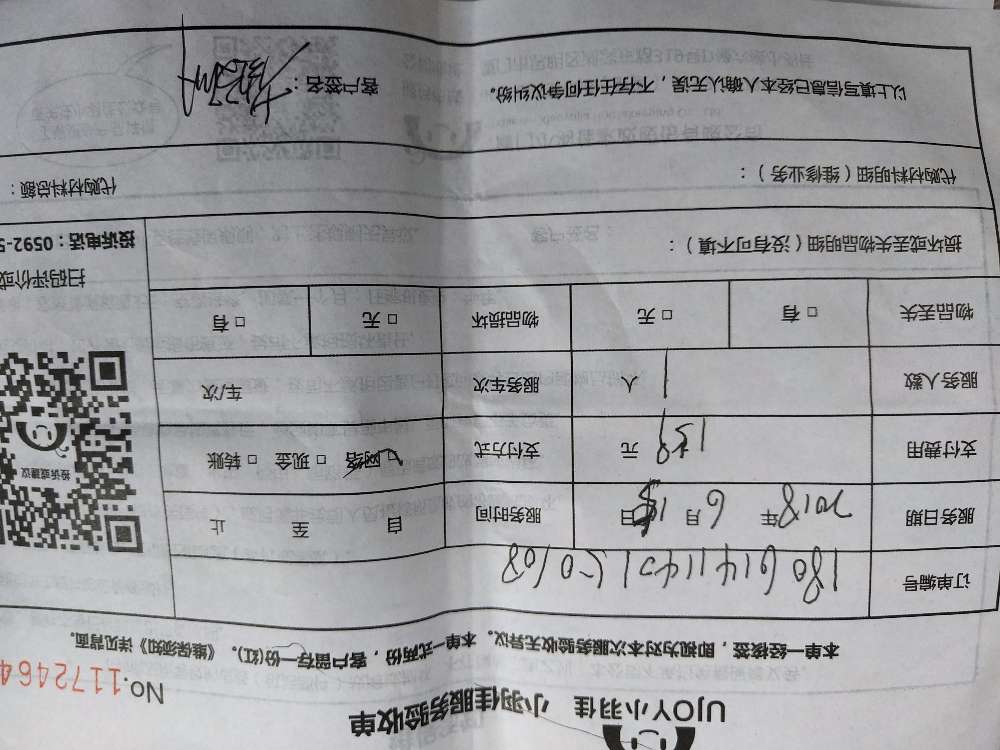 UJOY小羽佳 小羽佳服务验收单
No.1172464
本单一经接签，即视为对本次服务验收无异议。本单一式两份，客户留存一份(红)。《维保须知》详见背面。
订单编号
服务日期 2018年 6月 日 服务时间 自 至 止
支付费用 159 元 支付方式 网络 □ 现金 □ 转账
服务人数 1 人 服务车次 车/次
物品丢失 □ 有 □ 无 物品损坏 □ 无 □ 有
投诉或建议
扫码评价或
投诉电话：0592-5
损坏或丢失物品明细（没有可不填）：
代购材料明细（维修业务）： 代购材料总额：
以上填写信息已经本人确认无误，不存在任何争议纠纷。 客户签名：